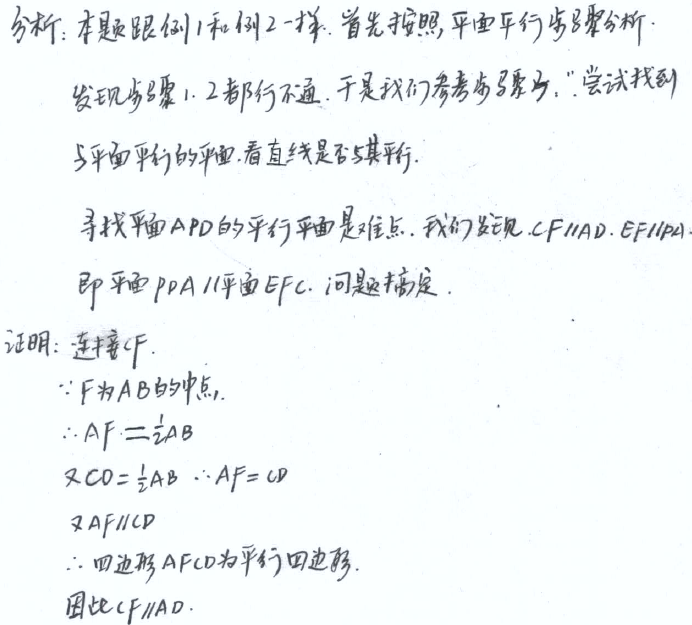 分析：本题跟例1和例2一样.首先按照,平面平行步骤分析.
发现步骤1.2都行不通.于是我们参考步骤3,"尝试找到
与平面平行的平面.看直线是否与其平行.
寻找平面APD的平行平面是难点.我们发现.CF//AD.EF//PA.
即平面PDA//平面EFC.问题搞定.
证明：连接CF.
∵F为AB的中点.
∴AF=½AB
又CD=½AB ∴AF=CD
又AF//CD
∴四边形AFCD为平行四边形.
因此CF//AD.